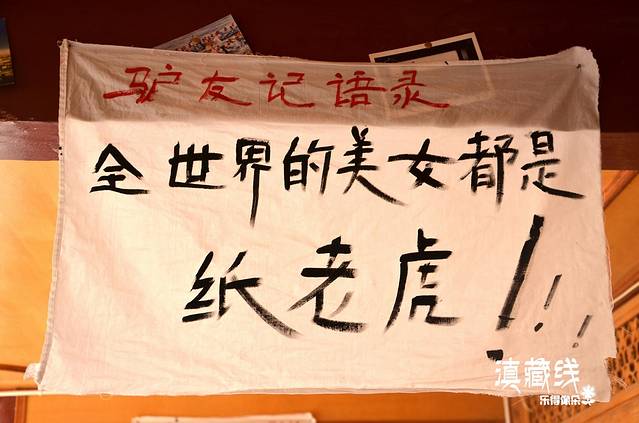 驴友记语录
全世界的美女都是
纸老虎!!!
滇藏线
乐得像朵